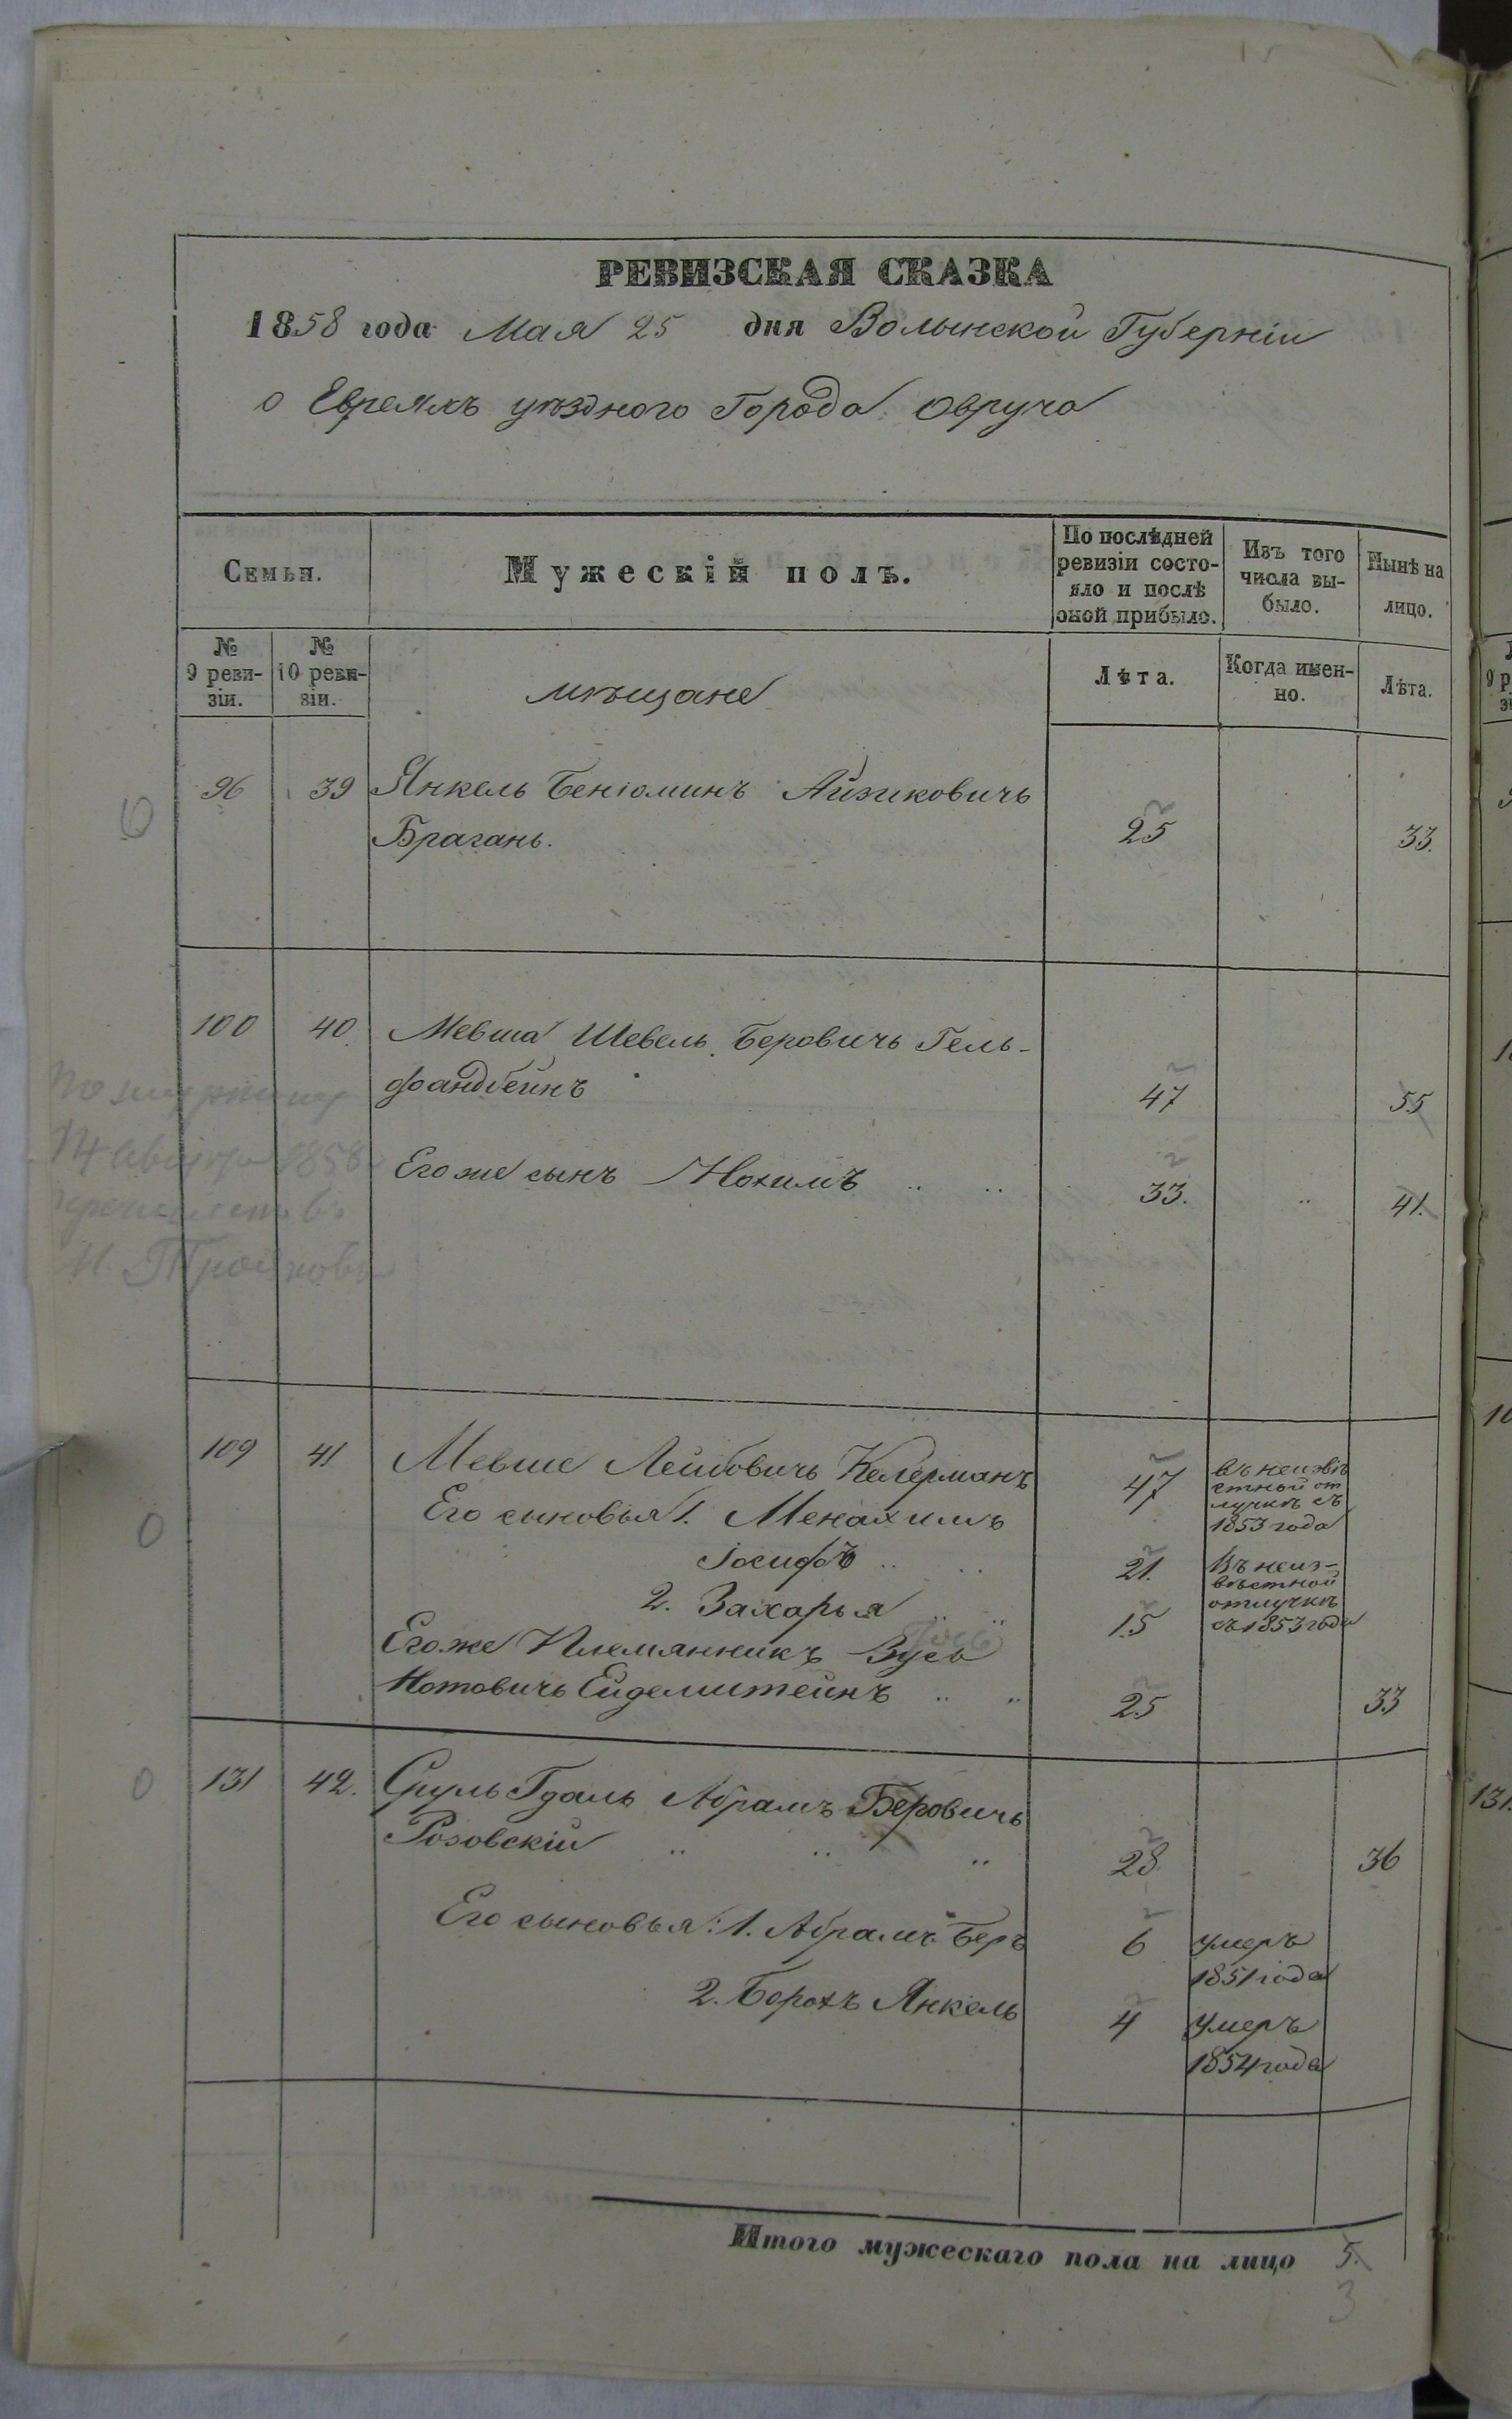 РЕВИЗСКАЯ СКАЗКА
1858 года Мая 25 дня Волынской Губерніи
о Евреяхъ уѣзднаго Города Овруча
Семьи.
Мужескій полъ.
По послѣдней
ревизіи состо-
яло и послѣ
оной прибыло.
Изъ того
числа вы-
было.
Нынѣ на
лицо.
№
9 реви-
зіи.
№
10 реви-
зіи.
мѣщане
Лѣта.
Когда имен-
но.
Лѣта.
96 39 Янкель Беніоминъ Айзиковичь
Брагань. 25 33.
100 40. Мевша Шевель Беровичь Гель-
фандбейнъ 47 55
14 1858
Его же сынъ Нохимъ .. .. 33. .. 41.
109 41 Мевше Лейбовичь Келерманъ 47 въ неизвѣ
стной от
лучкѣ съ
1853 года
Его сыновья 1. Менахимъ
Іосифъ .. .. 21. Въ неиз-
вѣстной
отлучкѣ
съ 1853 года
2. Захарья .. .. 15
Его же Племянникъ Зусь
Нотовичь Ейделштейнъ .. .. 25 33
131 42. Сруль Гдаль Абрамъ Беровичь
Розовскій .. .. .. 28. 36
Его сыновья: 1. Абрамъ Беръ 6 умеръ
1851 года
2. Борохъ Янкель 4 умеръ
1854 года
Итого мужескаго пола на лицо 5.
3